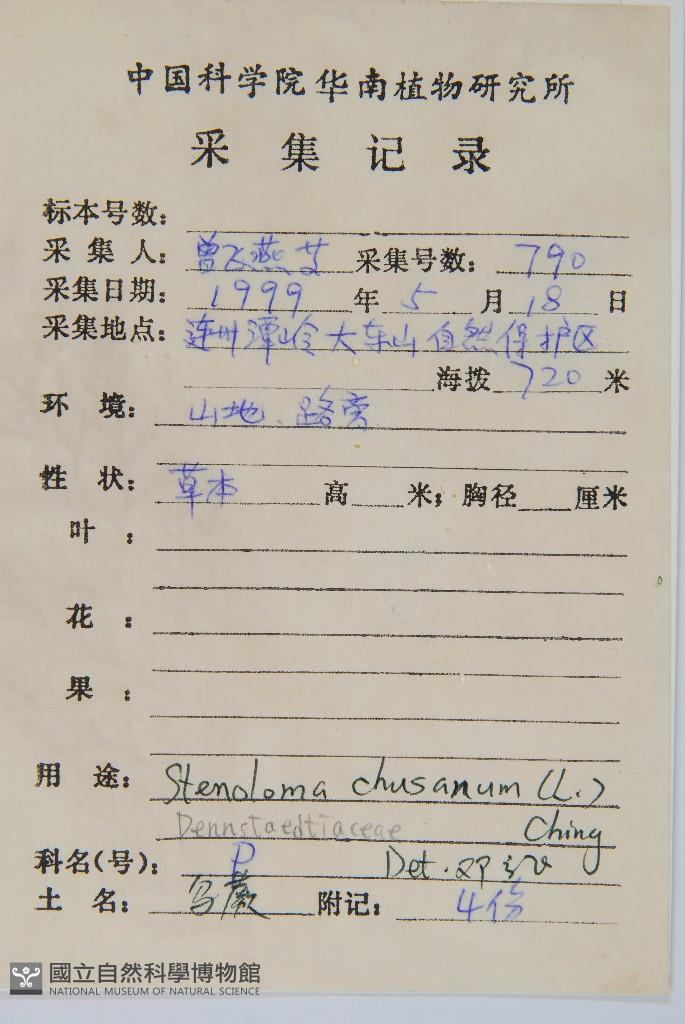 中国科学院华南植物研究所
采集记录
标本号数:
采集人: 曾飞燕等 采集号数: 790
采集日期: 1999 年 5 月 18 日
采集地点: 连州潭岭大东山自然保护区
海拨 720 米
环境: 山地、路旁
性状: 草本 高 米; 胸径 厘米
叶:
花:
果:
用途: Stenoloma chusanum (L.)
Dennstaedtiaceae Ching
科名(号): P Det.
土名: 乌蕨 附记: 4份
國立自然科學博物館
NATIONAL MUSEUM OF NATURAL SCIENCE